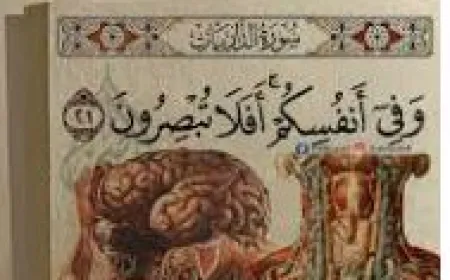 سُورَةُ الذَّارِيَاتِ
وَفِىٓ أَنفُسِكُمْ ۚ أَفَلَا تُبْصِرُونَ ٢١